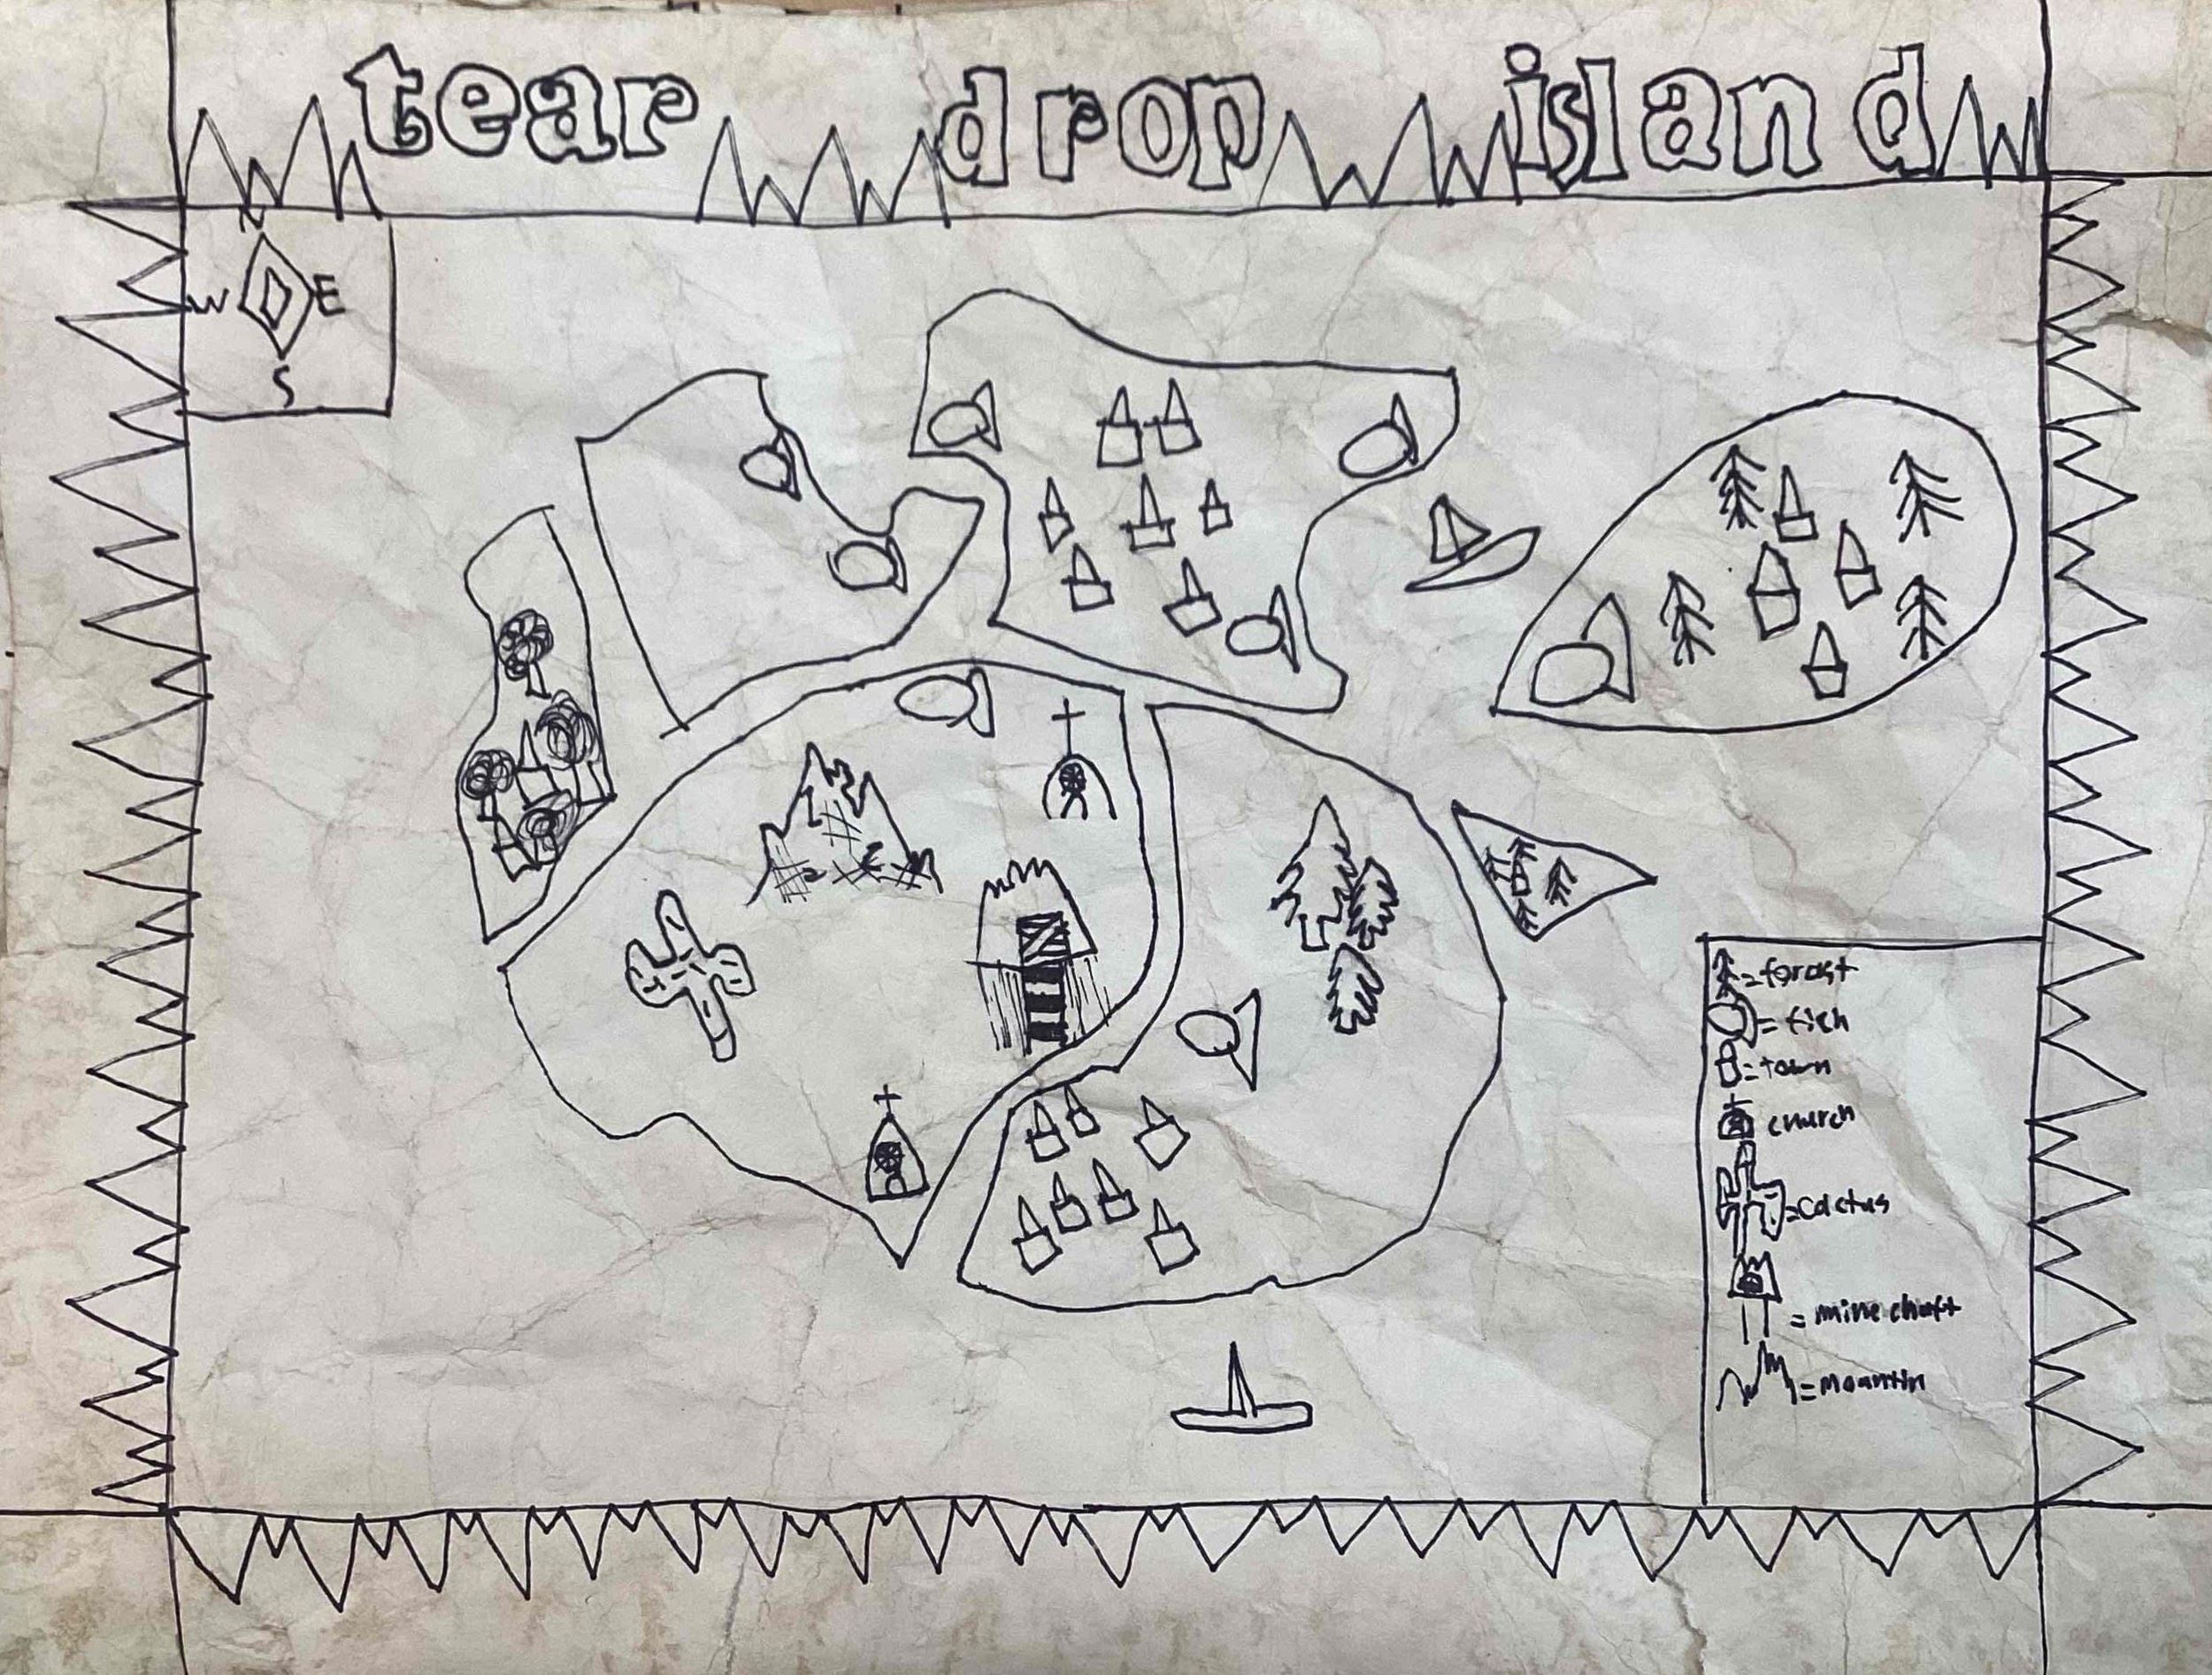 tear drop island
N
W E
S
= forast
= fish
= town
church
= cactus
= mine chaft
= moantin